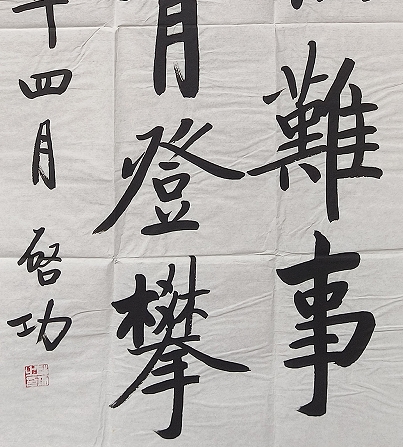 難事
肯登攀
四月 啓功